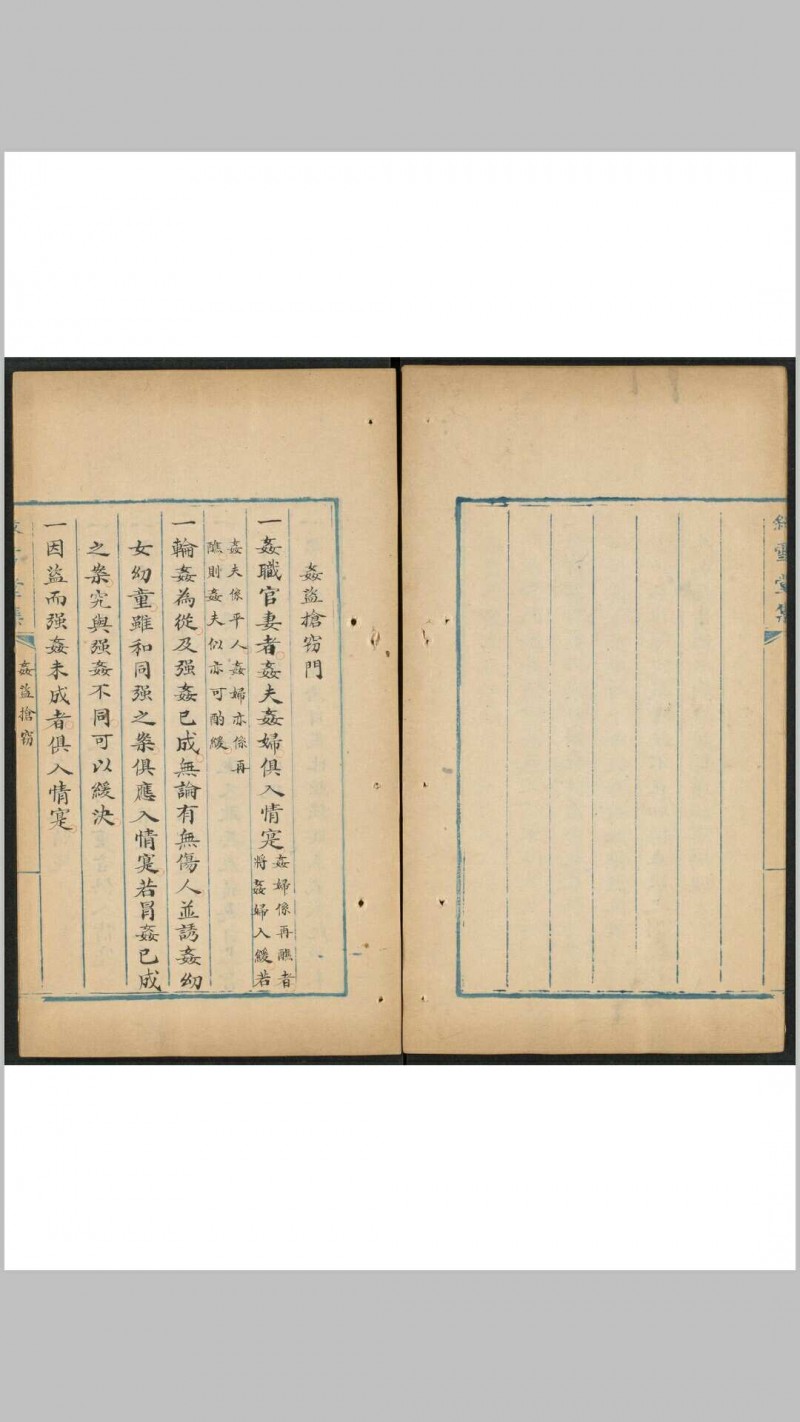 姦盜搶窃門
一姦職官妻者姦夫姦婦俱入情寔姦婦係再醮者
將姦婦入緩若
姦夫係平人姦婦亦係再
醮則姦夫似亦可酌緩
一輪姦為從及强姦已成無論有無傷人並誘姦幼
女幼童雖和同强之案俱應入情寔若冐姦已成
之案究與强姦不同可以緩決
一因盜而强姦未成者俱入情寔
姦盜搶窃